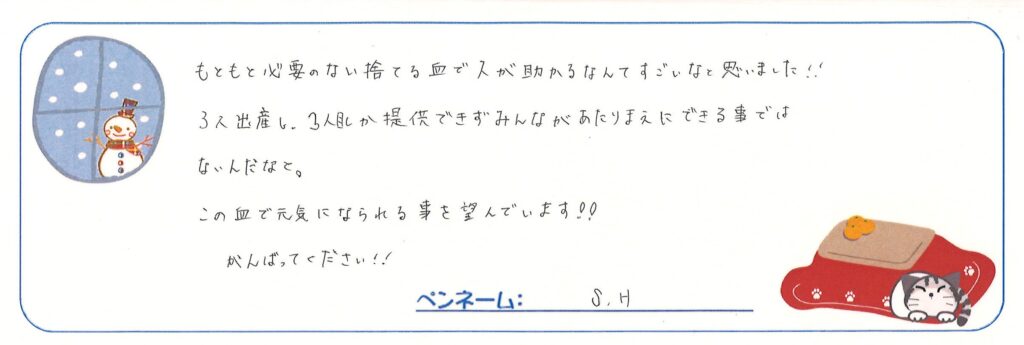 もともと必要のない捨てる血で人が助かるなんてすごいなと思いました!!
3人出産し、3人目しか提供できずみんながあたりまえにできる事では
ないんだなと。
この血で元気になられる事を望んでいます!!
がんばってください!!
ペンネーム: S.H